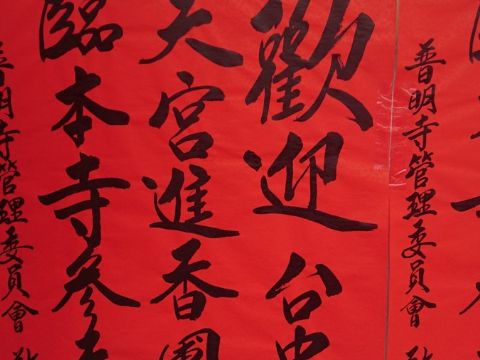 普明寺管理委員會
歡迎台中
天宮進香團
臨本寺參
普明寺管理委員會